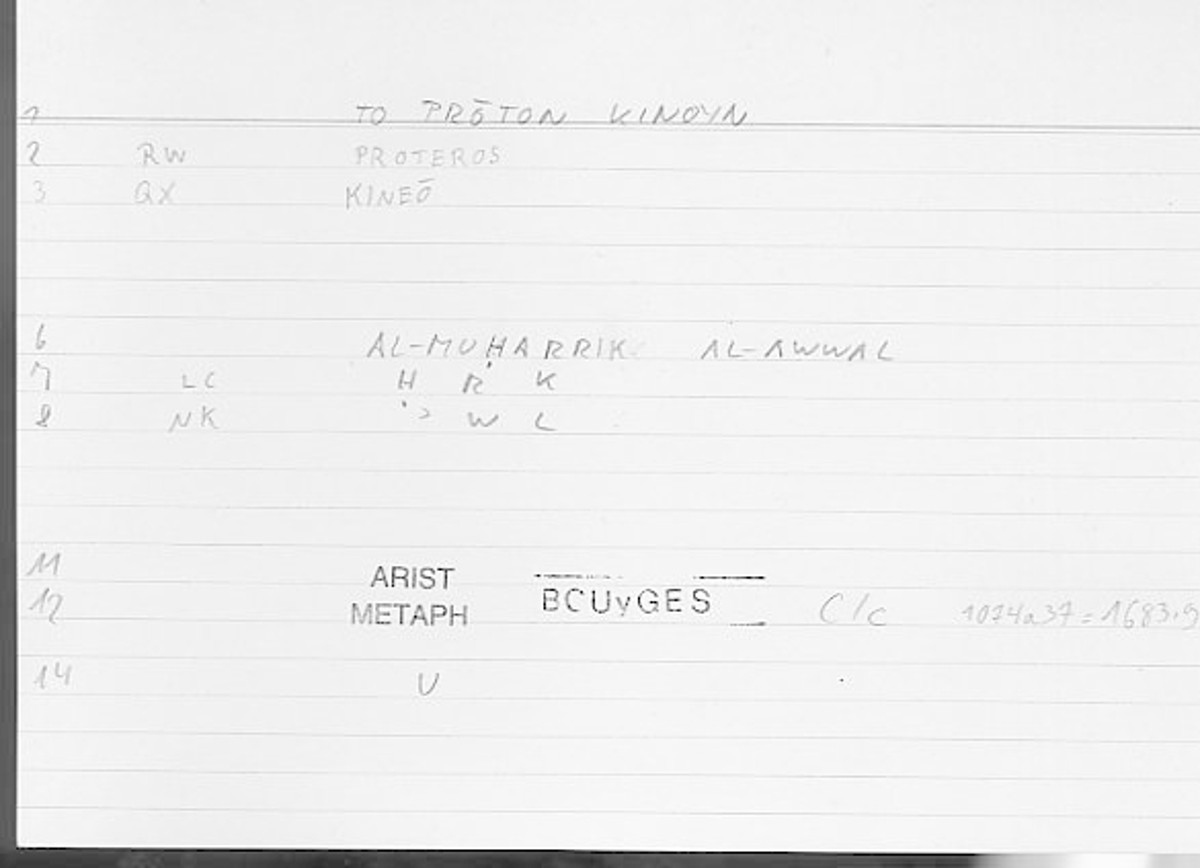 1 TO PRŌTON KINOYN
2 RW PROTEROS
3 QX KINEŌ
6 AL-MUḤARRIK AL-AWWAL
7 LC Ḥ R K
8 NK ʾ W L
11 ARIST
12 METAPH BOUyGES C/c 1074a37=1683.9
14 U